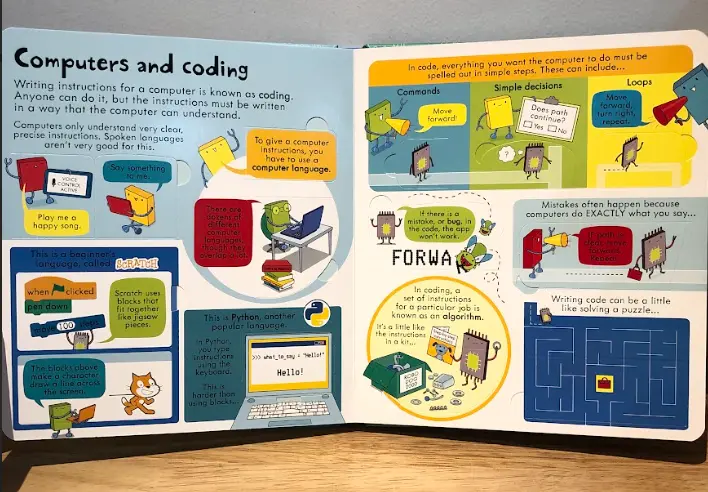 Computers and coding
Writing instructions for a computer is known as coding.
Anyone can do it, but the instructions must be written
in a way that the computer can understand.
Computers only understand very clear,
precise instructions. Spoken languages
aren't very good for this.
VOICE
CONTROL
ACTIVE
Say something
to me.
Play me a
happy song.
To give a computer
instructions, you
have to use a
computer language.
There are
dozens of
different
computer
languages,
though they
overlap a lot.
This is a beginner's
language, called SCRATCH
when clicked
pen down
move 100 steps
Scratch uses
blocks that
fit together
like jigsaw
pieces.
The blocks above
make a character
draw a line across
the screen.
This is Python, another
popular language.
In Python,
you type
instructions
using the
keyboard.
This is
harder than
using blocks...
>>> what_to_say = "Hello!"
Hello!
In code, everything you want the computer to do must be
spelled out in simple steps. These can include...
Commands
Move
forward!
Simple decisions
Does path
continue?
Yes No
?
Loops
Move
forward,
turn right,
repeat.
If there is a
mistake, or bug, in
the code, the app
won't work.
FORWA
Mistakes often happen because
computers do EXACTLY what you say...
In coding, a
set of instructions
for a particular job is
known as an algorithm.
It's a little like
the instructions
in a kit...
Writing code can be a little
like solving a puzzle...